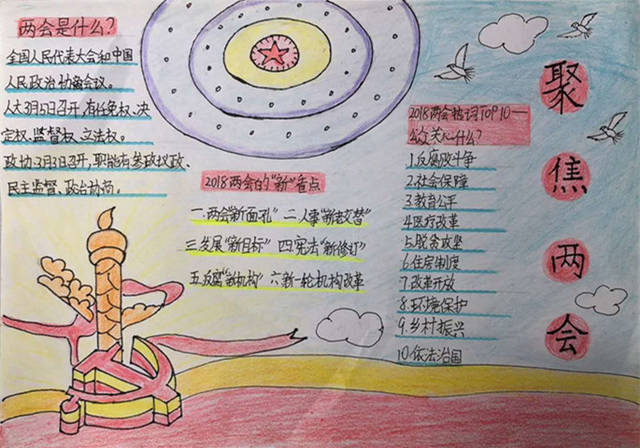 两会是什么?
全国人民代表大会和中国
人民政治协商会议。
人大3月5日召开,有任免权、决
定权、监督权、立法权。
政协3月3日召开,职能有参政议政、
民主监督、政治协商。
2018两会的"新"看点
一.两会"新面孔" 二.人事"新老交替"
三.发展"新目标" 四.宪法"新修订"
五.反腐"新机构" 六.新一轮机构改革
2018两会热词TOP10——
公众关心什么?
1.反腐败斗争
2.社会保障
3.教育公平
4.医疗改革
5.脱贫攻坚
6.住房制度
7.改革开放
8.环境保护
9.乡村振兴
10.依法治国
聚
焦
两
会